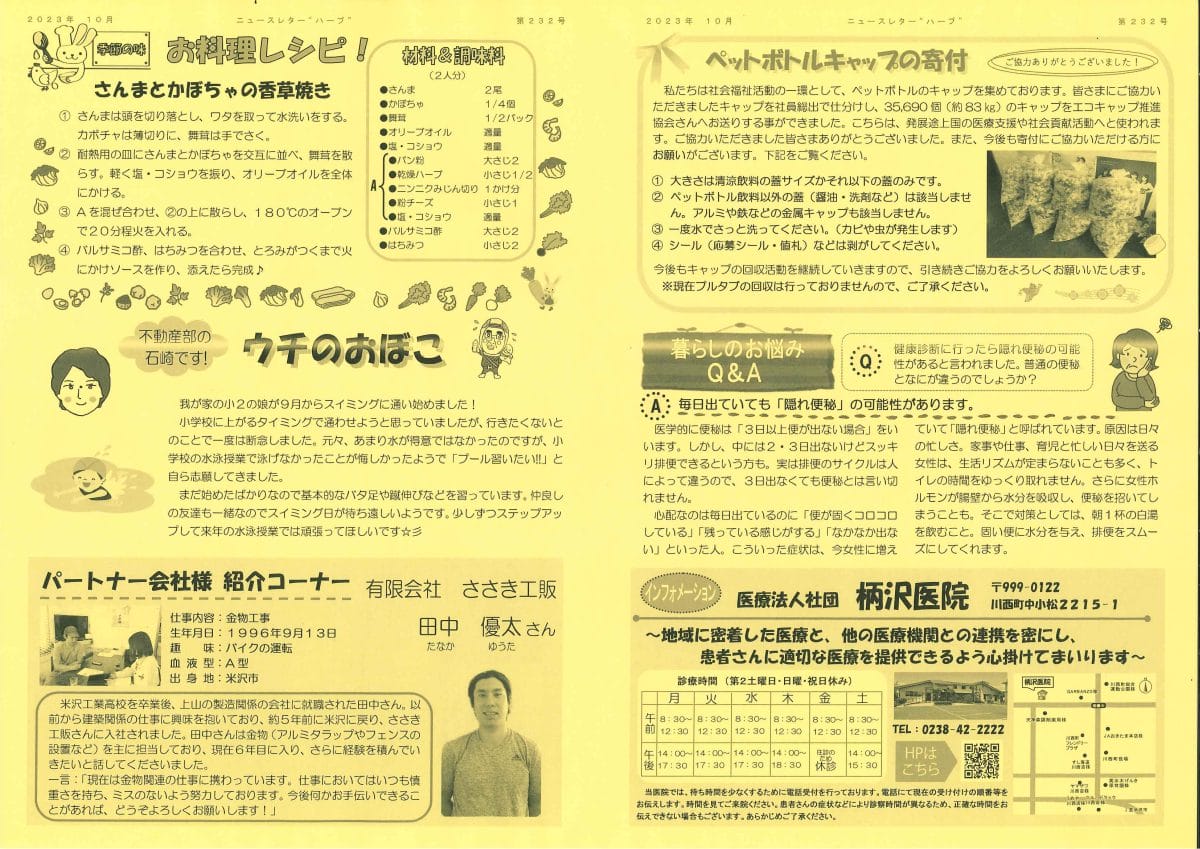 2023年 10月
ニュースレター“ハーブ”
第232号
季節の味
お料理レシピ！
さんまとかぼちゃの香草焼き
① さんまは頭を切り落とし、ワタを取って水洗いをする。
カボチャは薄切りに、舞茸は手でさく。
② 耐熱用の皿にさんまとかぼちゃを交互に並べ、舞茸を散
らす。軽く塩・コショウを振り、オリーブオイルを全体
にかける。
③ Aを混ぜ合わせ、②の上に散らし、180℃のオーブン
で20分程火を入れる。
④ バルサミコ酢、はちみつを合わせ、とろみがつくまで火
にかけソースを作り、添えたら完成♪
材料＆調味料
（2人分）
●さんま 2尾
●かぼちゃ 1/4個
●舞茸 1/2パック
●オリーブオイル 適量
●塩・コショウ 適量
A
●パン粉 大さじ2
●乾燥ハーブ 小さじ1/2
●ニンニクみじん切り 1かけ分
●粉チーズ 小さじ1
●塩・コショウ 適量
●バルサミコ酢 大さじ2
●はちみつ 小さじ2
不動産部の
石崎です!
ウチのおぼこ
我が家の小2の娘が9月からスイミングに通い始めました！
小学校に上がるタイミングで通わせようと思っていましたが、行きたくないと
のことで一度は断念しました。元々、あまり水が得意ではなかったのですが、小
学校の水泳授業で泳げなかったことが悔しかったようで「プール習いたい!!」と
自ら志願してきました。
まだ始めたばかりなので基本的なバタ足や蹴伸びなどを習っています。仲良し
の友達も一緒なのでスイミング日が待ち遠しいようです。少しずつステップアッ
プして来年の水泳授業では頑張ってほしいです☆彡
パートナー会社様 紹介コーナー
有限会社 ささき工販
仕事内容：金物工事
生年月日：1996年9月13日
趣　味：バイクの運転
血液型：A型
出身地：米沢市
田中 優太さん
たなか ゆうた
米沢工業高校を卒業後、上山の製造関係の会社に就職された田中さん。以
前から建築関係の仕事に興味を抱いており、約5年前に米沢に戻り、ささき
工販さんに入社されました。田中さんは金物（アルミタラップやフェンスの
設置など）を主に担当しており、現在6年目に入り、さらに経験を積んでい
きたいと話してくださいました。
一言：「現在は金物関連の仕事に携わっています。仕事においてはいつも慎
重さを持ち、ミスのないよう努力しております。今後何かお手伝いできるこ
とがあれば、どうぞよろしくお願いします！」
2023年 10月
ニュースレター“ハーブ”
第232号
ペットボトルキャップの寄付
ご協力ありがとうございました！
私たちは社会福祉活動の一環として、ペットボトルのキャップを集めております。皆さまにご協力い
ただきましたキャップを社員総出で仕分けし、35,690個（約83kg）のキャップをエコキャップ推進
協会さんへお送りする事ができました。こちらは、発展途上国の医療支援や社会貢献活動へと使われま
す。ご協力いただきました皆さまありがとうございました。また、今後も寄付にご協力いただける方に
お願いがございます。下記をご覧ください。
① 大きさは清涼飲料の蓋サイズかそれ以下の蓋のみです。
② ペットボトル飲料以外の蓋（醤油・洗剤など）は該当しませ
ん。アルミや鉄などの金属キャップも該当しません。
③ 一度水でさっと洗ってください。（カビや虫が発生します）
④ シール（応募シール・値札）などは剥がしてください。
今後もキャップの回収活動を継続していきますので、引き続きご協力をよろしくお願いいたします。
※現在プルタブの回収は行っておりませんので、ご了承ください。
暮らしのお悩み
Q&A
Q
健康診断に行ったら隠れ便秘の可能
性があると言われました。普通の便秘
となにが違うのでしょうか？
A
毎日出ていても「隠れ便秘」の可能性があります。
医学的に便秘は「3日以上便が出ない場合」をい
います。しかし、中には2・3日出ないけどスッキ
リ排便できるという方も。実は排便のサイクルは人
によって違うので、3日出なくても便秘とは言い切
れません。
心配なのは毎日出ているのに「便が固くコロコロ
している」「残っている感じがする」「なかなか出な
い」といった人。こういった症状は、今女性に増え
ていて「隠れ便秘」と呼ばれています。原因は日々
の忙しさ。家事や仕事、育児と忙しい日々を送る
女性は、生活リズムが定まらないことも多く、ト
イレの時間をゆっくり取れません。さらに女性ホ
ルモンが腸壁から水分を吸収し、便秘を招いてし
まうことも。そこで対策としては、朝1杯の白湯
を飲むこと。固い便に水分を与え、排便をスムー
ズにしてくれます。
インフォメーション
医療法人社団 柄沢医院
〒999-0122
川西町中小松2215-1
～地域に密着した医療と、他の医療機関との連携を密にし、
患者さんに適切な医療を提供できるよう心掛けてまいります～
診療時間（第2土曜日・日曜・祝日休み）
月 火 水 木 金 土
午前 8：30～12：30 8：30～12：30 8：30～12：30 8：30～12：30 8：30～12：30 8：30～12：30
午後 14：00～17：30 14：00～17：30 14：00～17：30 14：00～18：30 往診のため休診 14：00～15：30
TEL：0238-42-2222
HPは
こちら
柄沢医院
当医院では、待ち時間を少なくするために電話受付を行っております。電話にて現在の受け付けの順番等を
お伝えします。時間を見てご来院ください。患者さんの症状などにより診察時間が異なるため、正確な時間をお
伝えできない場合もございます。あらかじめご了承ください。